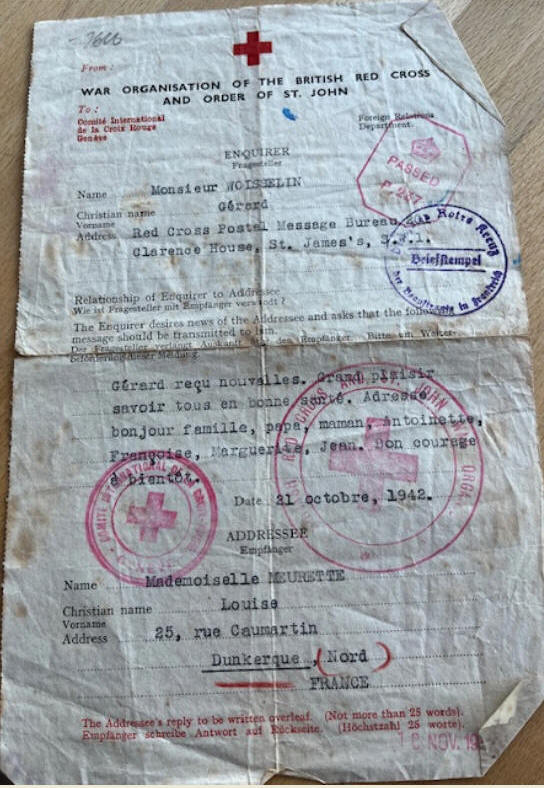 7616
From:
WAR ORGANISATION OF THE BRITISH RED CROSS
AND ORDER OF ST. JOHN
To:
Comité International
de la Croix Rouge
Genève
Foreign Relations
Department.
ENQUIRER
Fragesteller
PASSED
P. 227
Name Monsieur WOISSELIN
Christian name Gérard
Vorname
Address Red Cross Postal Message Bureau,
Clarence House, St. James's, S.W.1.
Rotes Kreuz
Briefstempel
Relationship of Enquirer to Addressee
Wie ist Fragesteller mit Empfänger verwandt ?
The Enquirer desires news of the Addressee and asks that the following
message should be transmitted to him.
Der Fragesteller verlangt Auskunft des Empfänger. Bitte um Weiter-
beförderung dieser Meldung.
Gérard reçu nouvelles. Grand plaisir
savoir tous en bonne santé. Adresse
bonjour famille, papa, maman, Antoinette,
Françoise, Marguerite, Jean. Bon courage
à bientôt.
RED CROSS AND ST. JOHN WAR ORGA
COMITÉ INTERNATIONAL DE LA CROIX-ROUGE
GENÈVE
Date 21 octobre, 1942.
ADDRESSEE
Empfänger
Name Mademoiselle MEURETTE
Christian name Louise
Vorname
Address 25, rue Caumartin
Dunkerque, (Nord)
FRANCE
The Addressee's reply to be written overleaf. (Not more than 25 words).
Empfänger schreibe Antwort auf Rückseite. (Höchstzahl 25 worte).
NOV. 19